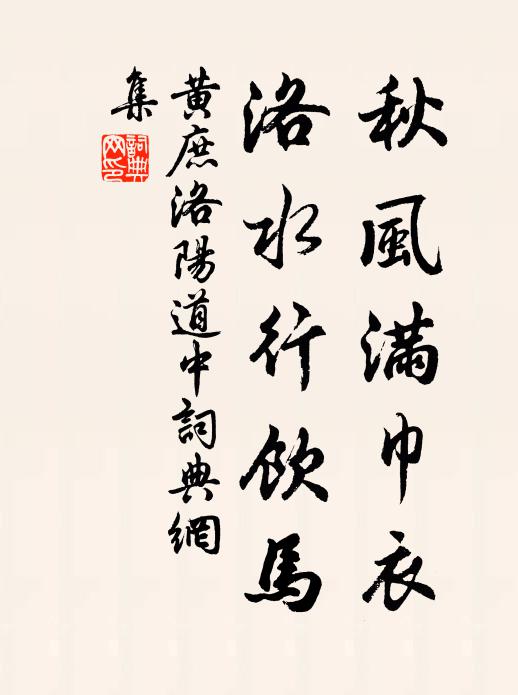 秋風滿巾衣
洛水行飲馬
黃庶洛陽道中詞典網
集
詞典
网印